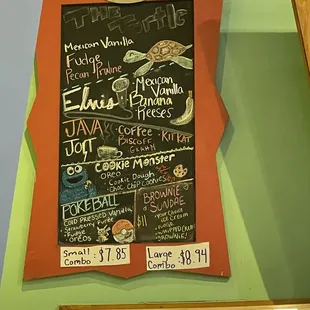 THE TURTLE
Mexican Vanilla
Fudge
Pecan Praline
Elvis
Mexican
Vanilla
Banana
Reeses
JAVA
JOLT
Coffee · KitKat
Biscoff
Graham
Cookie Monster
OREO
Cookie Dough
Choc Chip Cookies
POKEBALL
COLD PRESSED Vanilla
Strawberry Puree
Fudge
OREOS
BROWNIE
SUNDAE
$11
ICE CREAM
FUDGE
WHIPPED CREAM
BROWNIE
Small Combo : $7.85
Large Combo : $8.94